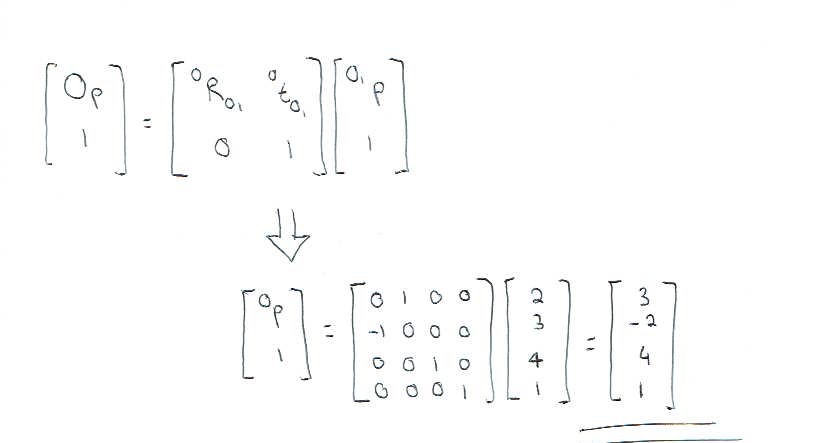 [ ᴼp ; 1 ] = [ ᴼR_O₁ ᴼt_O₁ ; 0 1 ] [ ᴼ¹p ; 1 ]
⇓
[ ᴼp ; 1 ] = [ 0 1 0 0 ; -1 0 0 0 ; 0 0 1 0 ; 0 0 0 1 ] [ 2 ; 3 ; 4 ; 1 ] = [ 3 ; -2 ; 4 ; 1 ]